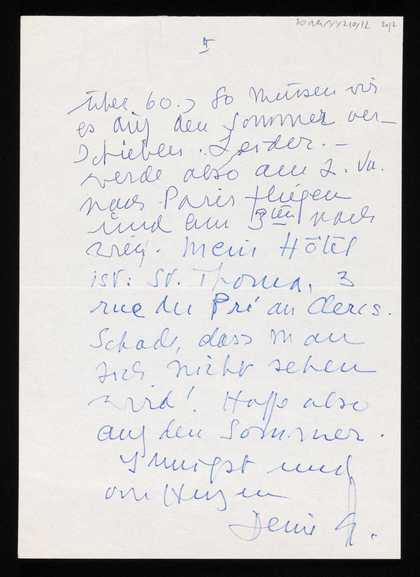 5
über 60.) So müssen wir
es auf den Sommer ver-
schieben. Leider. –
werde also am 2.
nach Paris fliegen
und am 3ten nach
mein Hôtel
ist: St. Thomas, 3
rue du Pré au Clercs.
Schade, dass man
sich nicht sehen
wird! Hoffe also
auf den Sommer.
Innigst und
von Herzen